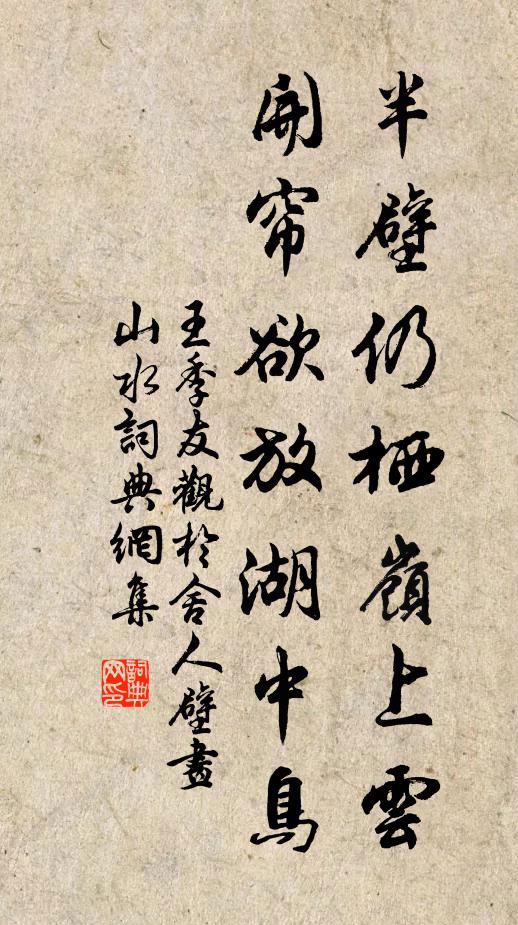 半壁仍栖嶺上雲
開帘欲放湖中鳥
王季友觀於舍人壁畫
山水詞典網集
詞典网印